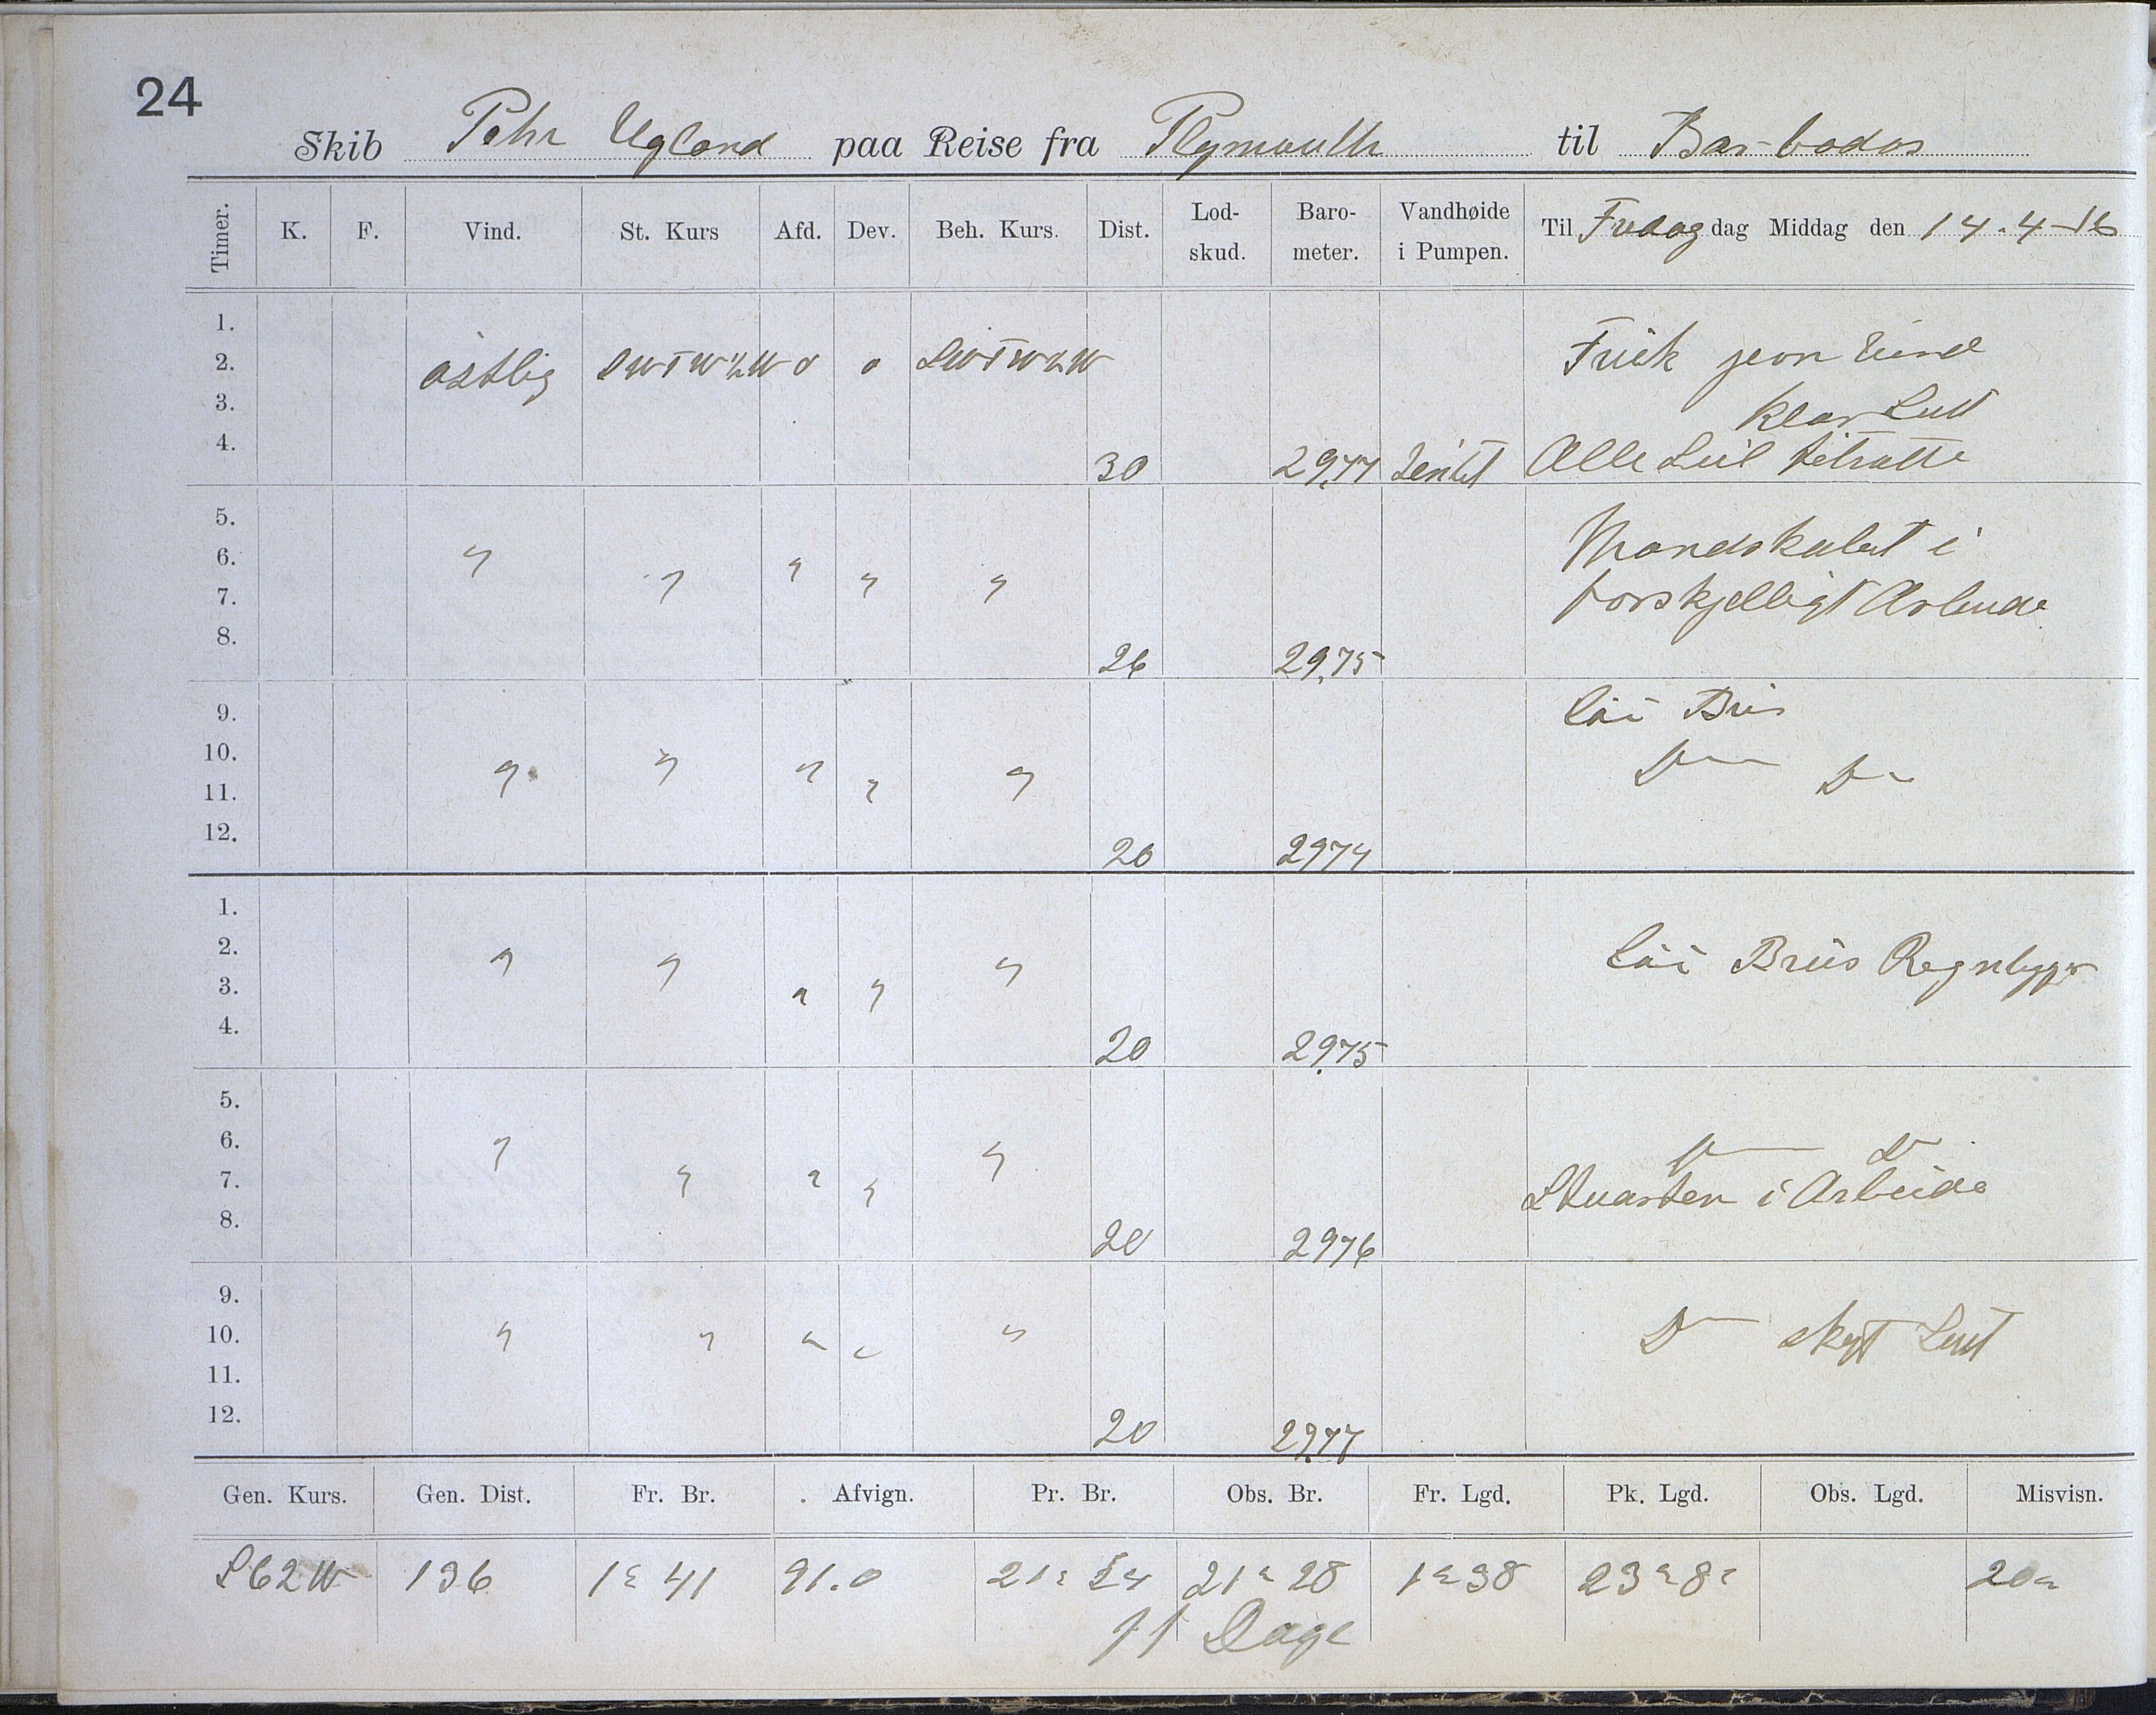 24
Skib Pehr Ugland paa Reise fra Plymouth til Barbados
Timer. K. F. Vind. St. Kurs Afd. Dev. Beh. Kurs. Dist. Lod-skud. Baro-meter. Vandhøide i Pumpen. Til Fredag dag Middag den 14.4-16
1.
2. østlig SWTW½W 0 0 SWTW½W Frisk jevn Vind
3. klar Luft
4. 30 29,77 Lentet Alle Seil tilsatte
5.
6. " " " " " Mandskabet i
7. forskjelligt Arbeide
8. 26 29,75
9. Lai Bris
10. " " " " " D— D—
11.
12. 20 2974
1.
2. " " " " " Lai Briis Regnbyger
3.
4. 20 29,75
5.
6. " " " " " D— D
7. Stuarten i Arbeide
8. 20 2976
9.
10. " " " " " D— skyt Luft
11.
12. 20 29,77
Gen. Kurs. Gen. Dist. Fr. Br. Afvign. Pr. Br. Obs. Br. Fr. Lgd. Pk. Lgd. Obs. Lgd. Misvisn.
S62W 136 1° 41 91.0 21° 21° 28 1° 38 23° 8' 20°
11 Dage